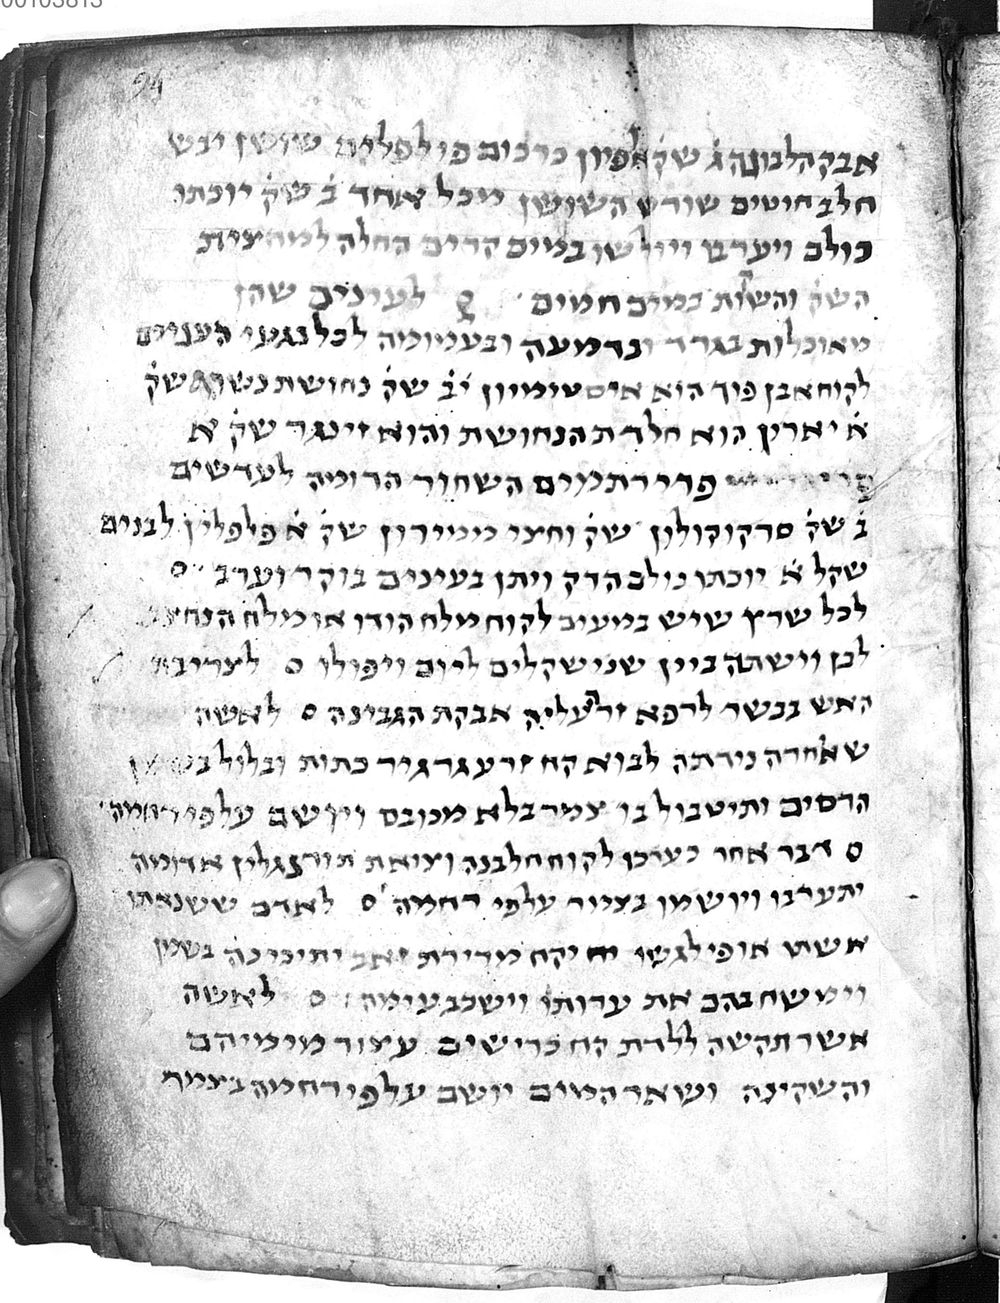 00103813
94
אבק הלבונה ג̇ שק̇ אפיון כרכום פולפלים שושן יבש
חלב חיטים שורש השושן מכל אחד ב̇ שק̇ יוכתו
כולם ויערבו ויולשו במים קרים החלה למחצית
השק̇ והשות במים חמים לעינים שהן
מאוכלות בגרר ובדמעה ובעמומה לכל נגעי העינים
לקוח אבן פוך הוא איסטימיון י̇ב̇ שק̇ נחושת נשרף שק̇
א̇ יארין הוא חלדת הנחושת והוא זינגר שק̇ א
פרידת מים השחור הדומה לעדשים
ב̇ שק̇ סרקוקולון שק̇ וחצי מימירון שק̇ א̇ פלפלין לבנים
שקל א̇ יוכתו כולם הדק ויתן בעינים בוקר וערב
לכל שרץ שיש במעים לקוח מלח הודו או מלח
לבן וישתה ביין שני שקלים ליום ויפולו לצריבת
האש בבשר לרפא זר עליה אבקת הגבינה לאשה
שאחרה נידתה לבוא קח זרע גרגיר כתות ובלול
הדסים ותיטבול בו צמר בלא מכובס ויושם על פי רחמה
דבר אחר כערכו לקוח חלבנה וצואת תורנגלין אדומה
יתערבו ויושמו בצמר על פי רחמה לאדם ששנאתו
אשתו או פילגשו יקח מרירת זאב בשמן
וימשח בהם את ערותו וישכב עימה לאשה
אשר תקשה ללדת קח כרישים עצור מימיהם
והשקינה ושאר המים יושם על פי רחמה בצמר